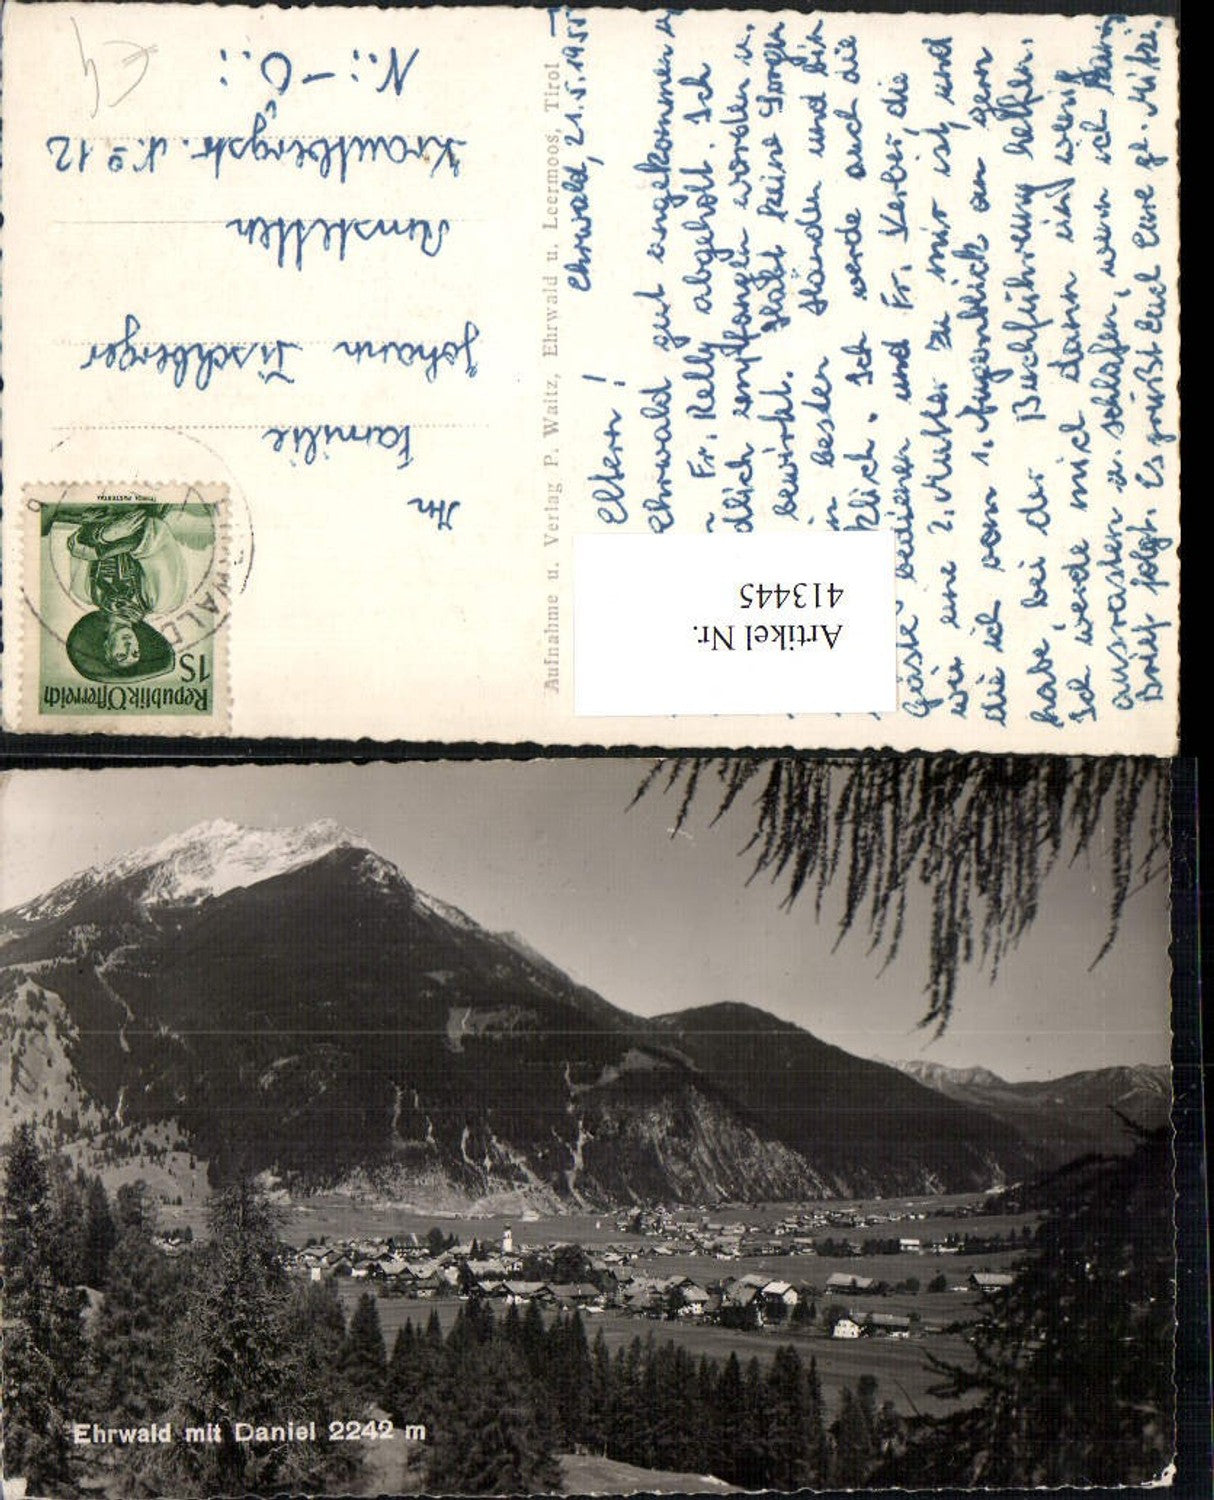 Ehrwald, 21.5.1955
Eltern!
Ehrwald gut angekommen u
Fr. Relly abgeholt. Ich
dlich empfangen worden u.
bewirkt. Habt keine Sorgen
in besten Händen und bin
klich. Ich werde auch die
Gäste bedienen und Fr. Kerber, die
wie eine 2. Mutter zu mir ist, und
die ich vom 1. Augenblick an gern
habe, bei der Buchführung helfen.
Ich werde mich dann
ausrasten u. schlafen, wenn ich
Brief folgt. Es grüßt Euch Eure gl. Mitzi.
Artikel Nr.
413445
Aufnahme u. Verlag P. Waitz, Ehrwald u. Leermoos, Tirol
Republik Österreich
1S
TIROL PUSTERTAL
EHRWALD
An
Familie
Johann Fischberger
Amstetten
Krautbergstr. No 12
N.:-Ö.:
Ehrwald mit Daniel 2242 m